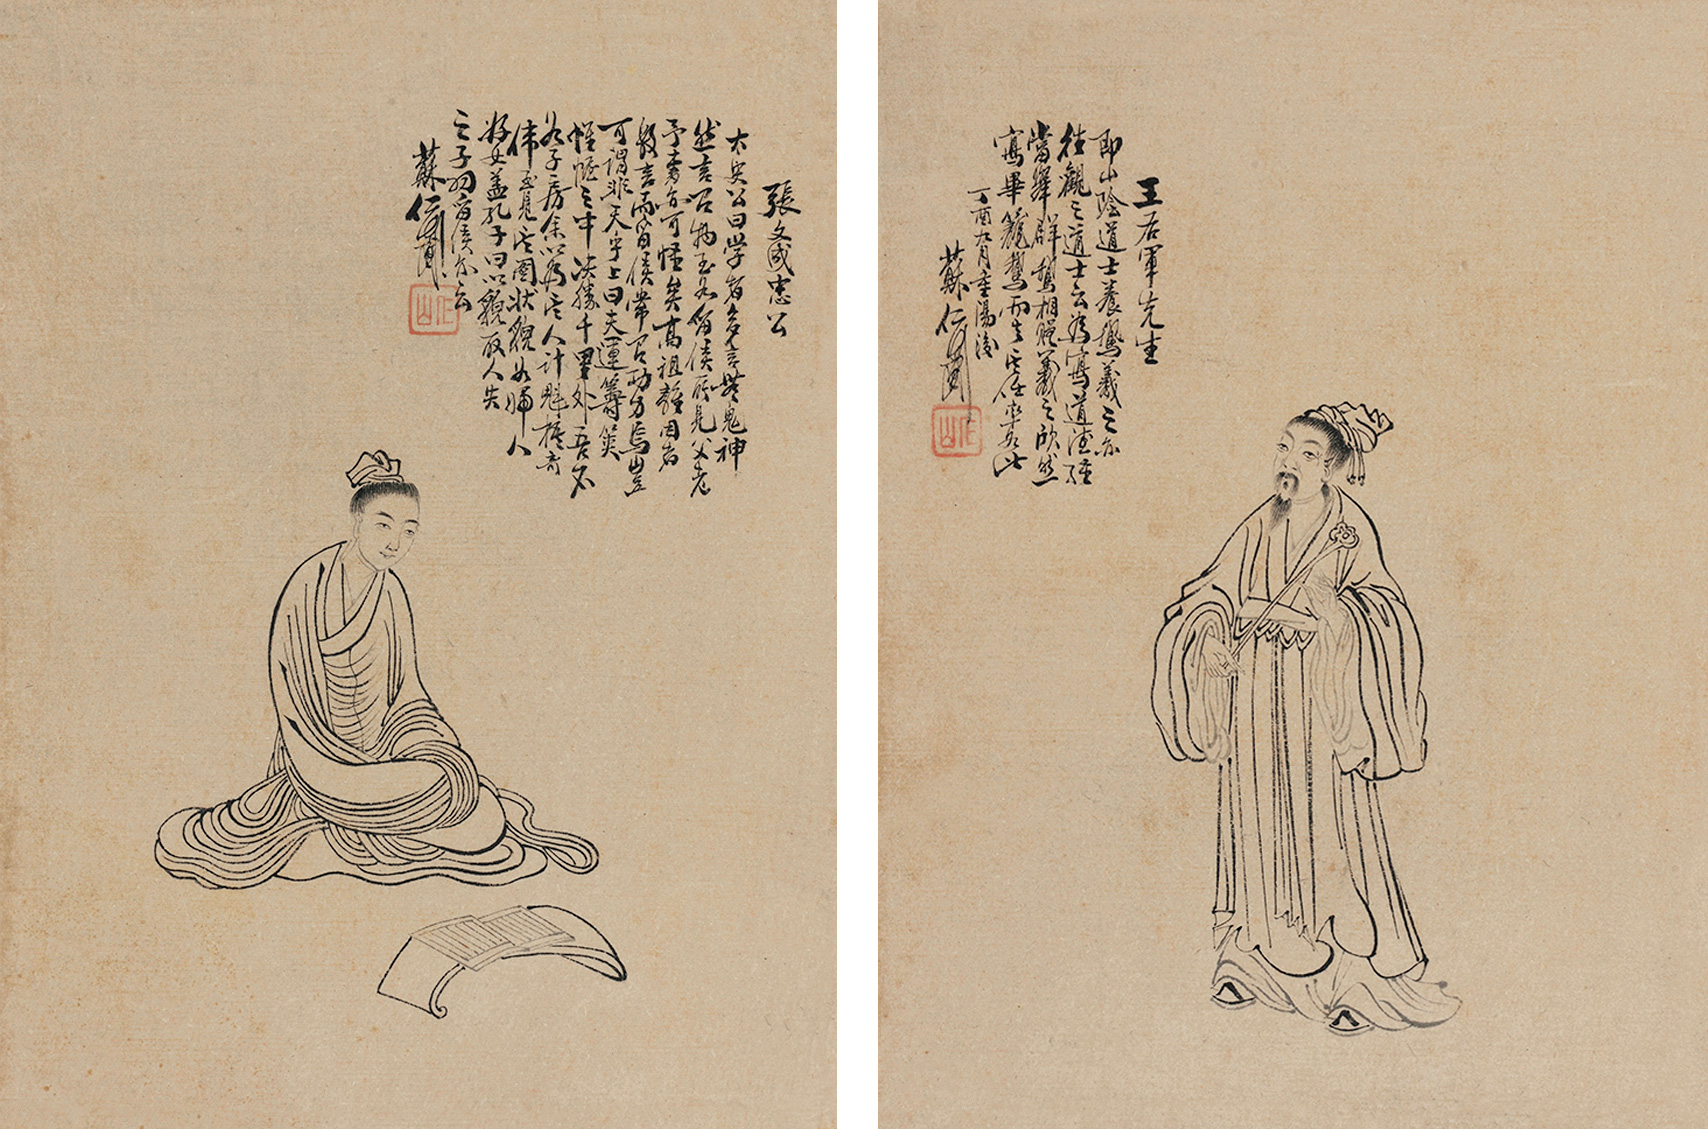 張文成忠公
太史公曰學者多言無鬼神
然言有物至如留侯所見父老
予書亦可怪矣高祖離困者
數言而留侯常有功力焉豈
可謂非天乎上曰夫運籌筴
帷幄之中决勝千里外吾不
如子房余以為其人計魁梧奇
偉至見其圖狀貌如婦人
好女蓋孔子曰以貌取人失
之子羽留侯亦云
蘇仁山
仁山
王右軍先生
即山陰道士養鵞羲之亦
往觀之道士云為寫道德經
當舉群鵞相贈羲之欣然
寫畢籠鵞而去其任率如此
丁酉九月重陽後
蘇仁山
仁山